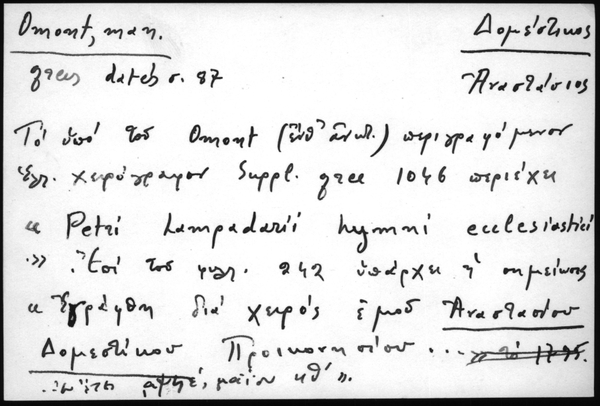 Omont, man. Δομέστικος
grecs datés σ. 87 Ἀναστάσιος
Τό ὑπό τοῦ Omont (ἔνθ' ἀνωτ.) περιγραφόμενον
ἑλλ. χειρόγραφον Suppl. grec 1046 περιέχει
« Petri Lampadarii hymni ecclesiastici
..». Ἐπί τοῦ φυλλ. 242 ὑπάρχει ἡ σημείωσις
« Ἐγράφθη διά χειρός ἐμοῦ Ἀναστασίου
Δομεστίκου Προικονησίου ... » τό 1795.
ἐν ἔτει αψϟε, μαΐου κθ΄».